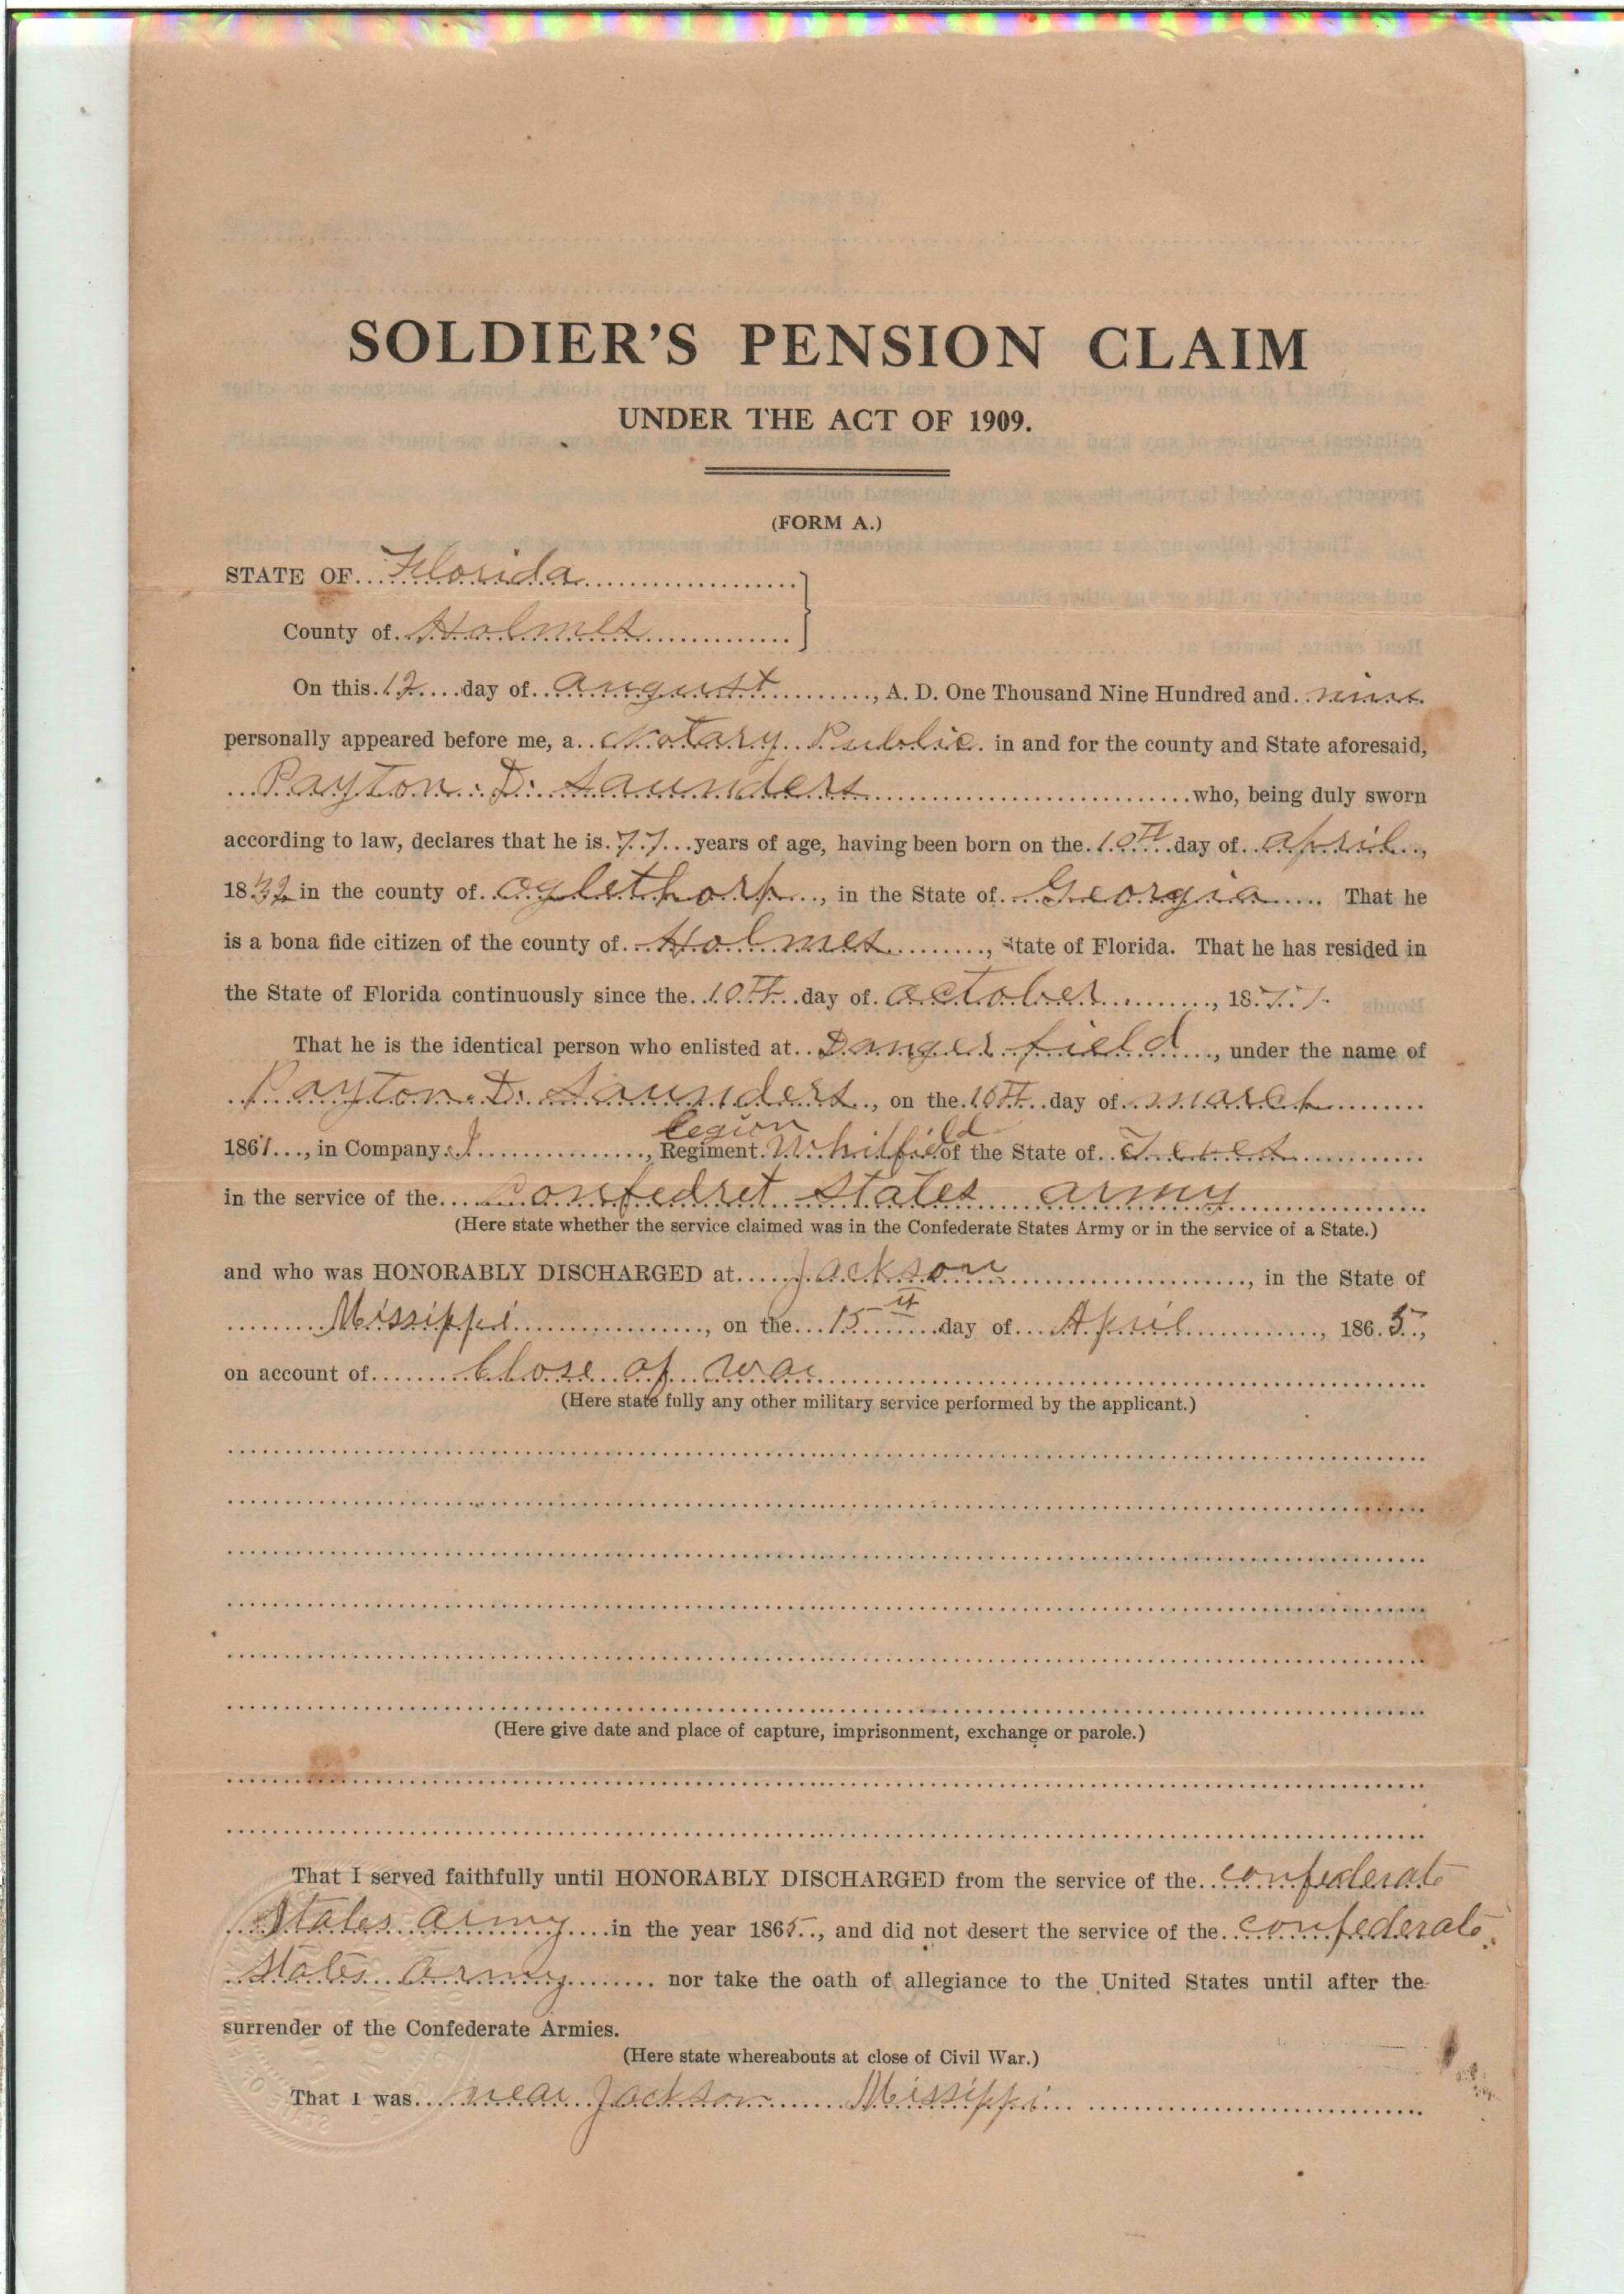 SOLDIER'S PENSION CLAIM
UNDER THE ACT OF 1909.
(FORM A.)
STATE OF Florida
County of Holmes
On this 12 day of August, A. D. One Thousand Nine Hundred and nine
personally appeared before me, a Notary Public in and for the county and State aforesaid,
Payton D. Saunders who, being duly sworn
according to law, declares that he is 77 years of age, having been born on the 10th day of April,
1832 in the county of Oglethorp, in the State of Georgia. That he
is a bona fide citizen of the county of Holmes, State of Florida. That he has resided in
the State of Florida continuously since the 10th day of October, 1877.
That he is the identical person who enlisted at Danger field, under the name of
Payton D. Saunders, on the 10th day of march
1861, in Company I, Regiment Legion Whitfield of the State of Texes
in the service of the Confedret States army
(Here state whether the service claimed was in the Confederate States Army or in the service of a State.)
and who was HONORABLY DISCHARGED at Jackson, in the State of
Missippi, on the 15th day of April, 1865,
on account of Close of war
(Here state fully any other military service performed by the applicant.)
(Here give date and place of capture, imprisonment, exchange or parole.)
That I served faithfully until HONORABLY DISCHARGED from the service of the Confederate
States Army in the year 1865, and did not desert the service of the Confederate
States Army nor take the oath of allegiance to the United States until after the
surrender of the Confederate Armies.
(Here state whereabouts at close of Civil War.)
That I was near Jackson Missippi